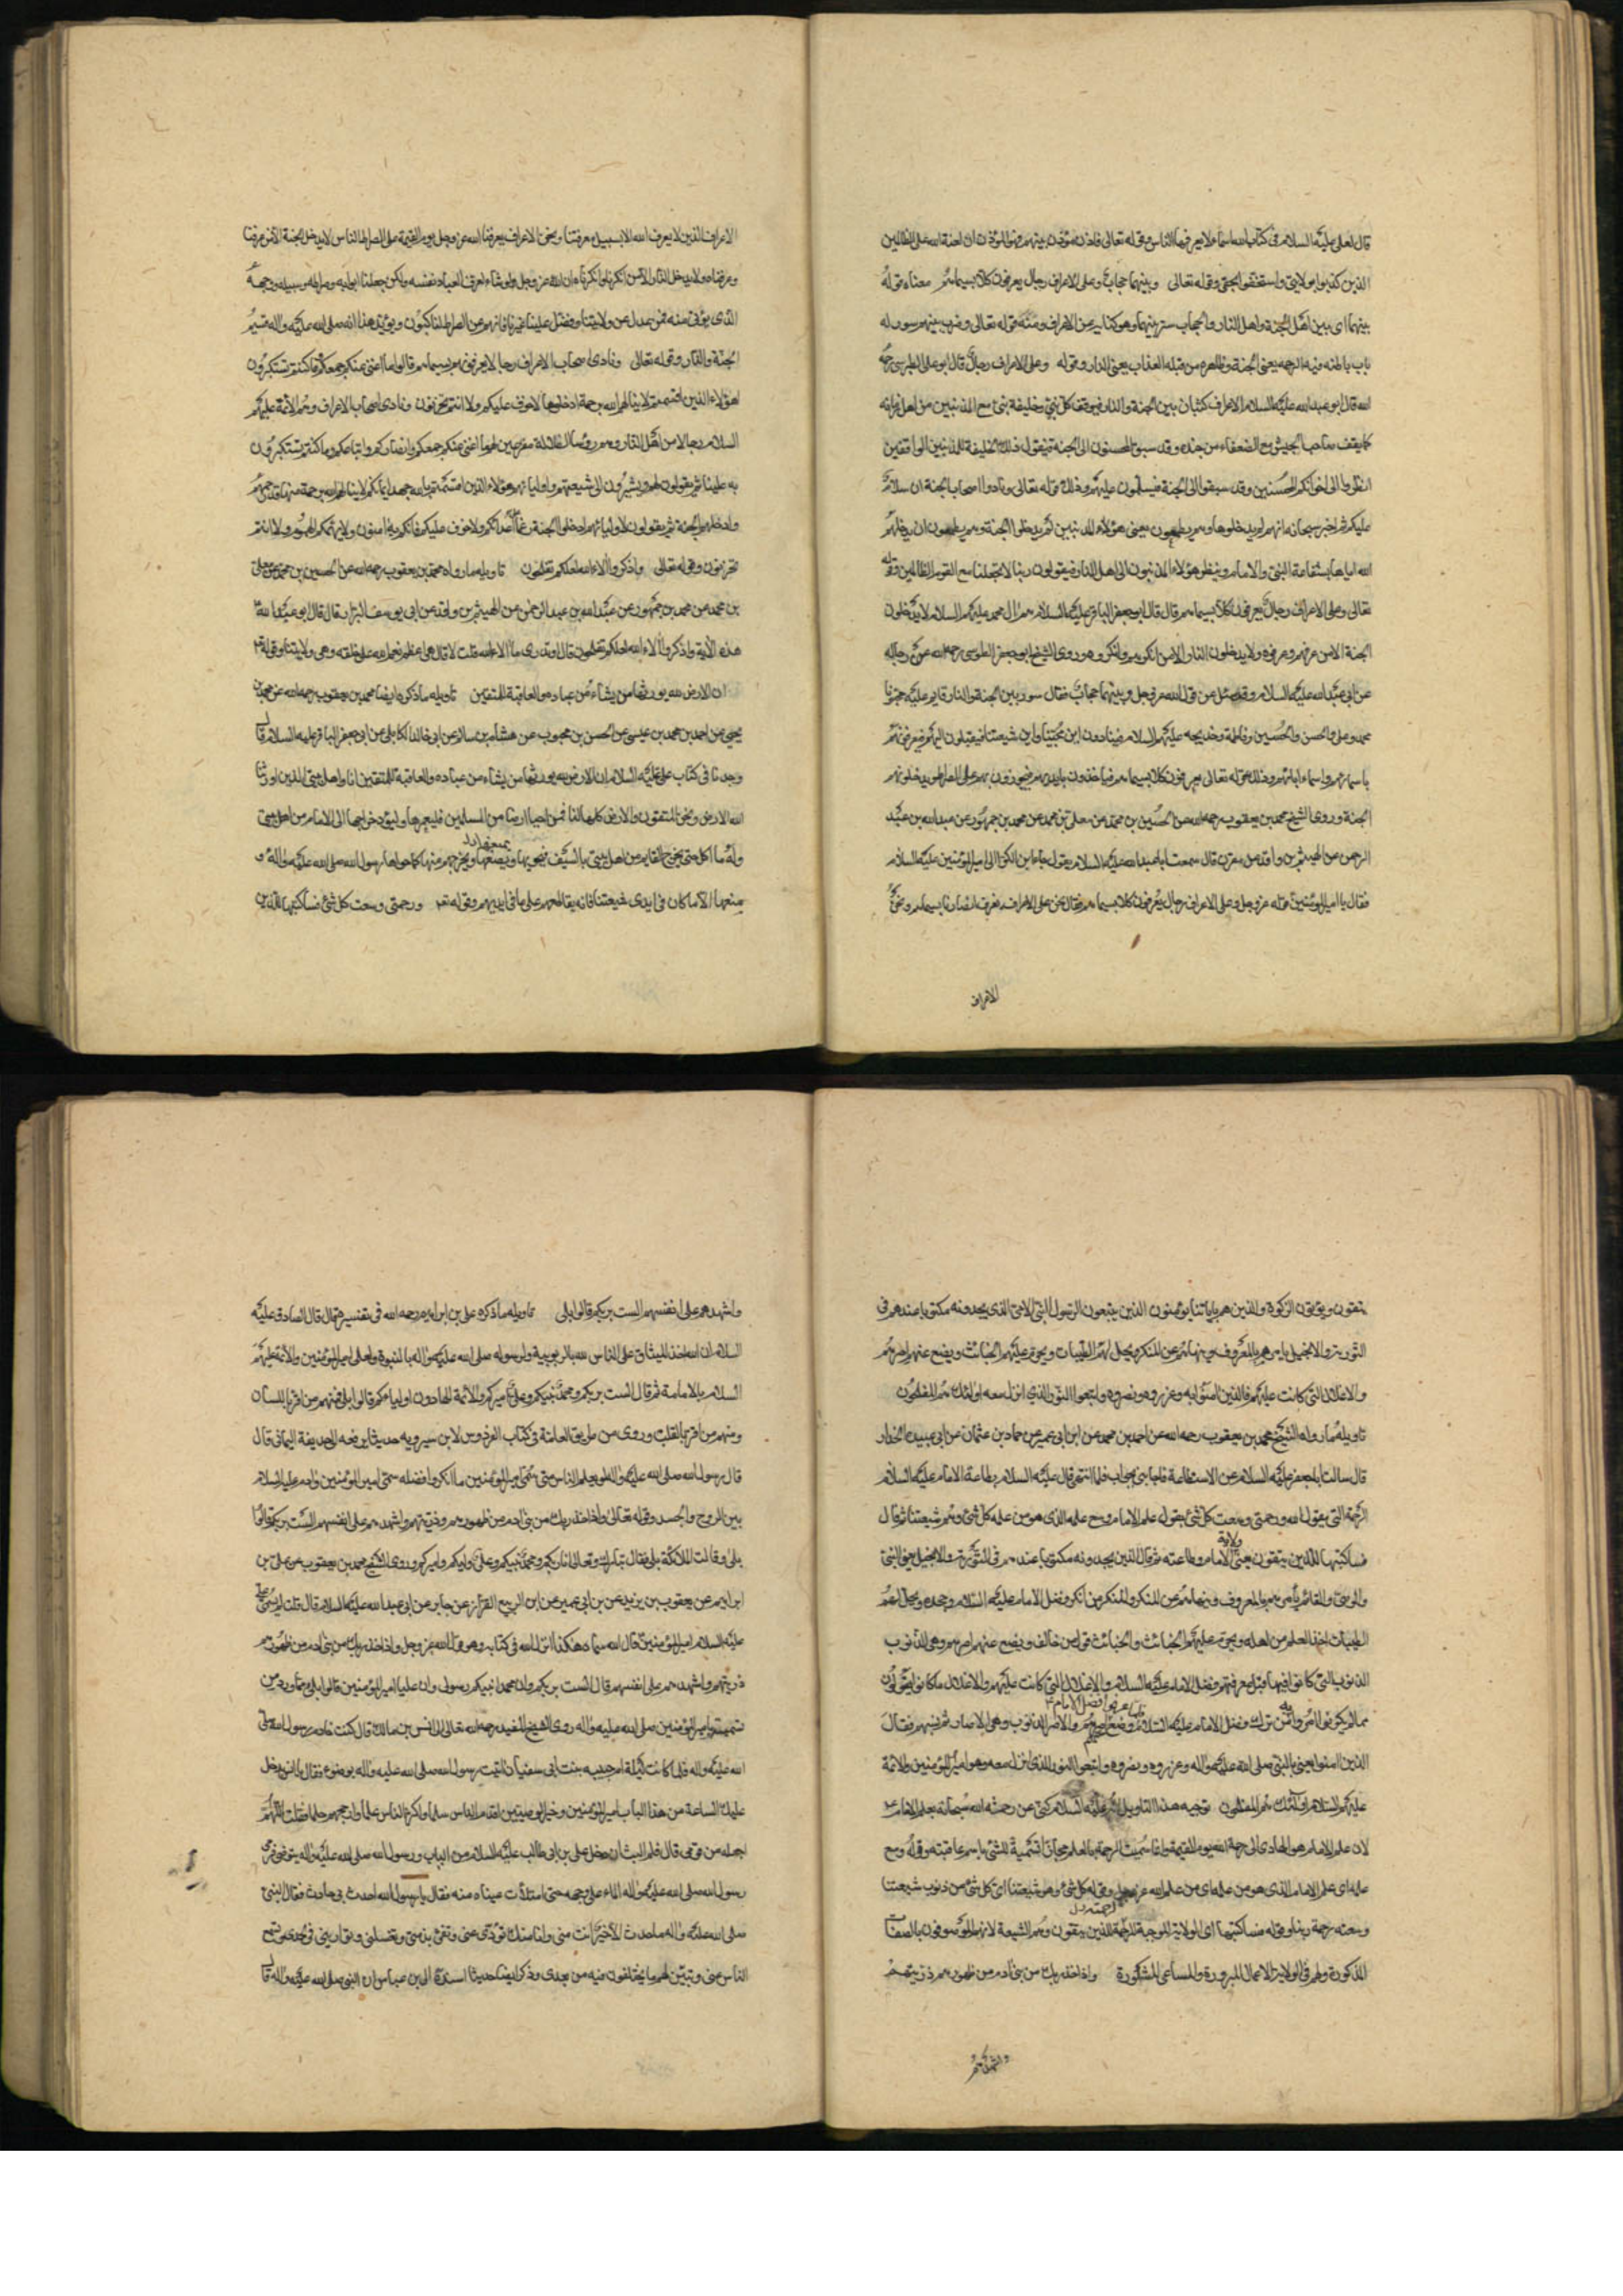 قال لعلى عليه السلام فى كتاب الله اسماء لا يعرفها الناس وقوله تعالى فاذن مؤذن بينهم فهو المؤذن ان لعنة الله على الظالمين
الذين كذبوا بولايتى واستخفوا بحقى وقوله تعالى وبينهما حجاب وعلى الاعراف رجال يعرفون كلا بسيماهم معناه قوله
بينهما اى بين اهل الجنة واهل النار والحجاب ستر بينهما وهو كناية عن الاعراف ومنه قوله تعالى وضرب بينهم بسور له
باب باطنه فيه الرحمه يعنى الجنة وظاهره من قبله العذاب يعنى النار وقوله وعلى الاعراف رجال قال ابو على الطبرسى رحمه
الله قال ابو عبد الله عليه السلام الاعراف كثبان بين الجنة والنار فيوقف كل نبى وخليفة نبى مع المذنبين من اهل زمانه
كما يقف صاحب الجيش مع الضعفاء من جنده وقد سبق المحسنون الى الجنة فيقول ذلك الخليفة للمذنبين الواقفين
انظروا الى اخوانكم المحسنين وقد سبقوا الى الجنة فيسلمون عليهم وذلك قوله تعالى ونادوا اصحاب الجنة ان سلام
عليكم ثم اخبر سبحانه انهم لم يدخلوها وهم يطمعون يعنى هؤلاء المذنبين لم يدخلوا الجنة وهم يطمعون ان يدخلهم
الله اياها بشفاعة النبى والامام وينظر هؤلاء المذنبون الى اهل النار فيقولون ربنا لا تجعلنا مع القوم الظالمين وقوله
تعالى وعلى الاعراف رجال يعرفون كلا بسيماهم قال قال ابو جعفر الباقر عليه السلام هم ال محمد عليهم السلام لا يدخلون
الجنة الا من عرفهم وعرفوه ولا يدخلون النار الا من انكرهم وانكروه وروى الشيخ ابو جعفر الطوسى رحمه الله عن رجاله
عن ابى عبد الله عليه السلام وقد سئل عن قول الله عز وجل وبينهما حجاب فقال سور بين الجنة والنار قايم عليه
محمد وعلى والحسن والحسين وفاطمة وخديجه عليهم السلام فينادون اين محبينا واين شيعتنا فيقبلون اليهم فيعرفونهم
باسمائهم واسماء ابائهم وذلك قوله تعالى يعرفون كلا بسيماهم فياخذون بايديهم فيجوزون بهم على الصراط ويدخلونهم
الجنة وروى الشيخ محمد بن يعقوب رحمه الله عن الحسين بن محمد عن معلى بن محمد عن محمد بن جمهور عن عبد الله بن عبد
الرحمن عن الهيثم بن واقد عن مقرن قال سمعت ابا عبد الله عليه السلام يقول جاء ابن الكوا الى امير المؤمنين عليه السلام
فقال يا امير المؤمنين قوله عز وجل وعلى الاعراف رجال يعرفون كلا بسيماهم فقال نحن على الاعراف نعرف انصارنا بسيماهم ونحن
الاعراف
الاعراف الذين لا يعرف الله الا بسبيل معرفتنا ونحن الاعراف يعرفنا الله عز وجل يوم القيمة على الصراط الناس لا يدخل الجنة الا من عرفنا
وعرفناه ولا يدخل النار الا من انكرنا وانكرناه ان الله عز وجل لو شاء لعرف العباد نفسه ولكن جعلنا ابوابه وصراطه وسبيله ووجهه
الذى يؤتى منه فمن عدل عن ولايتنا وفضل علينا غيرنا فانهم عن الصراط لناكبون ويؤيد هذا انه صلى الله عليه واله قسيم
الجنة والنار وقوله تعالى ونادى اصحاب الاعراف رجالا يعرفونهم بسيماهم قالوا ما اغنى عنكم جمعكم وما كنتم تستكبرون
اهؤلاء الذين اقسمتم لا ينالهم الله برحمة ادخلوها لا خوف عليكم ولا انتم تحزنون ونادى اصحاب الاعراف وهم الائمة عليهم
السلام رجالا من اهل النار وهم رؤسا الضلالة مقرعين لهم ما اغنى عنكم جمعكم وانصاركم واتباعكم وما كنتم تستكبرون
به علينا ثم يقولون لهم ويشيرون الى شيعتهم واوليائهم هؤلاء الذين اقسمتم بالله جهد ايمانكم لا ينالهم الله برحمة منه
وادخلهم الجنة ثم يقولون لاوليائهم ادخلوا الجنة رغما على اعدائكم ولا خوف عليكم فانكم امنون ولا انتم
تحزنون وقوله تعالى واذكروا الاء الله لعلكم تفلحون تاويله ما رواه محمد بن يعقوب رحمه الله عن الحسين بن محمد عن معلى
بن محمد عن محمد بن جمهور عن عبد الله بن عبد الرحمن عن الهيثم بن واقد عن ابى يوسف البزاز قال قال ابو عبد الله
هذه الاية واذكروا الاء الله لعلكم تفلحون قال اوتدرى ما الاء الله قلت لا قال هى اعظم نعم الله على خلقه وهى ولايتنا وقوله
ان الارض لله يورثها من يشاء من عباده والعاقبة للمتقين تاويله ما ذكره ايضا محمد بن يعقوب رحمه الله عن محمد بن
يحيى عن احمد بن محمد بن عيسى عن الحسن بن محبوب عن هشام بن سالم عن ابى خالد الكابلى عن ابى جعفر الباقر عليه السلام قال
وجدنا فى كتاب على عليه السلام ان الارض لله يورثها من يشاء من عباده والعاقبة للمتقين انا واهل بيتى الذين اورثنا
الله الارض ونحن المتقون والارض كلها لنا فمن احيا ارضا من المسلمين فليعمرها وليؤد خراجها الى الامام من اهل بيتى
وله ما اكل حتى يخرج القايم من اهل بيتى بالسيف فيحويها ويخرجهم منها كما حواها رسول الله صلى الله عليه واله و
منعها الا ما كان فى ايدى شيعتنا فانه يقاطعهم على ما فى ايديهم وقوله ورحمتى وسعت كل شئ فساكتبها للذين
يتقون ويؤتون الزكوة والذين هم باياتنا يؤمنون الذين يتبعون الرسول النبى الامى الذى يجدونه مكتوبا عندهم فى
التورية والانجيل يامرهم بالمعروف وينهاهم عن المنكر ويحل لهم الطيبات ويحرم عليهم الخبائث ويضع عنهم اصرهم
والاغلال التى كانت عليهم فالذين امنوا به وعزروه ونصروه واتبعوا النور الذى انزل معه اولئك هم المفلحون
تاويله ما رواه الشيخ محمد بن يعقوب رحمه الله عن احمد بن محمد عن ابن ابى عمير عن حماد بن عثمان عن ابى عبيدة الحذاء
قال سالت ابا جعفر عليه السلام عن الاستطاعة فاجابنى بجواب فلما انتهى قال عليه السلام بطاعة الامام عليه السلام
الرحمة التى يقول الله ورحمتى وسعت كل شئ يقول علم الامام وسع علمه الذى هو من علمه كل شئ وهم شيعتنا ثم قال
ولاية
فساكتبها للذين يتقون يعنى الامام وطاعته ثم قال الذين يجدونه مكتوبا عندهم فى التورية والانجيل يعنى النبى
والوصى والقائم يأمرهم بالمعروف وينهاهم عن المنكر والمنكر من انكر فضل الامام عليه السلام وجحده ويحل لهم
الطيبات اخذ العلم من اهله ويحرم عليهم الخبائث والخبائث قول من خالف ويضع عنهم اصرهم وهى الذنوب
الذنوب التى كانوا فيها قبل معرفتهم فضل الامام عليه السلام والاغلال التى كانت عليهم والاغلال ما كانوا يقولون
فلما عرفوا فضل الامام
مما لم يكونوا امروا به من ترك فضل الامام عليه السلام وضع عنهم اصرهم والاصر الذنوب وهى الاصار ثم نسبهم فقال
الذين امنوا يعنى بالنبى صلى الله عليه واله وعزروه ونصروه واتبعوا النور الذى انزل معه وهو امير المؤمنين والائمة
عليهم السلام اولئك هم المفلحون توجيه هذا التاويل عليه السلام كنى عن رحمة الله سبحانه بعلم الامام
لان علم الامام هو الهادى الى رحمة الله يوم القيمة وانما سميت الرحمة بالعلم مجازا تسمية للشئ باسم عاقبته وقوله وسع
علمه اى علم الامام الذى هو من علمه اى من علم الله عز وجل وقوله كل شئ وهو شيعتنا اى كل شئ من ذنوب شيعتنا
وسعته رحمة ربنا وقوله فساكتبها اى الولاية الموجبة الرحمة للذين يتقون وهم الشيعة لانهم الموصوفون بالصفات
المذكورة ولهم فى الولاية الاعمال المبرورة والمساعى المشكورة واذ اخذ ربك من بنى ادم من ظهورهم ذريتهم
واشهدهم
واشهدهم على انفسهم الست بربكم قالوا بلى تاويله ما ذكره على بن ابراهيم رحمه الله فى تفسيره قال قال الصادق عليه
السلام ان الله اخذ الميثاق على الناس لله بالربوبية ولرسوله صلى الله عليه واله بالنبوة ولعلى امير المؤمنين والائمة عليهم
السلام بالامامة ثم قال الست بربكم ومحمد نبيكم وعلى اميركم والائمة الهادون اولياءكم قالوا بلى فمنهم من اقر باللسان
ومنهم من اقر بالقلب وروى من طريق العامة فى كتاب الفردوس لابن سيرويه حديثا يرفعه الى حذيفة اليمانى قال
قال رسول الله صلى الله عليه واله لو يعلم الناس متى سمى امير المؤمنين ما انكروا فضله سمى امير المؤمنين وادم عليه السلام
بين الروح والجسد وقوله تعالى واذ اخذ ربك من بنى ادم من ظهورهم وذريتهم واشهدهم على انفسهم الست بربكم قالوا
بلى وقالت الملائكة بلى فقال تبارك وتعالى انا ربكم ومحمد نبيكم وعلى وليكم واميركم وروى الشيخ محمد بن يعقوب عن على بن
ابراهيم عن يعقوب بن يزيد عن بن ابى عمير عن ابى الربيع القزاز عن جابر عن ابى عبد الله عليه السلام قال قلت لم سمى على
عليه السلام امير المؤمنين قال الله سماه هكذا انزل الله فى كتابه وهو قول الله عز وجل واذ اخذ ربك من بنى ادم من ظهورهم
ذريتهم واشهدهم على انفسهم قال الست بربكم وان محمدا نبيكم رسولى وان عليا امير المؤمنين قالوا بلى ومما ورد من
تسميته بامير المؤمنين صلى الله عليه واله روى الشيخ المفيد رحمه الله تعالى الى انس بن مالك قال كنت خادم رسول الله صلى
الله عليه واله فلما كانت ليلة ام حبيبه بنت ابى سفيان اتيت رسول الله صلى الله عليه واله بوضوء فقال يا انس يدخل
عليك الساعة من هذا الباب امير المؤمنين وخير الوصيين اقدم الناس سلما واكثر الناس علما وارجحهم حلما فقلت اللهم
اجعله من قومى قال فلم البث ان دخل على بن ابى طالب عليه السلام من الباب ورسول الله صلى الله عليه واله يتوضئ فرمى
رسول الله صلى الله عليه واله الماء على وجهه حتى امتلأت عيناه منه فقال يا رسول الله احدث فى حادث فقال النبى
صلى الله عليه واله ما حدث الا خير انت منى وانا منك تؤدى عنى وتفى بذمتى وتغسلنى وتوارينى فى لحدى وتسمع
الناس عنى وتبين لهم ما يختلفون فيه من بعدى وذكر ايضا حديثا اسنده الى ابن عباس ان النبى صلى الله عليه واله قال